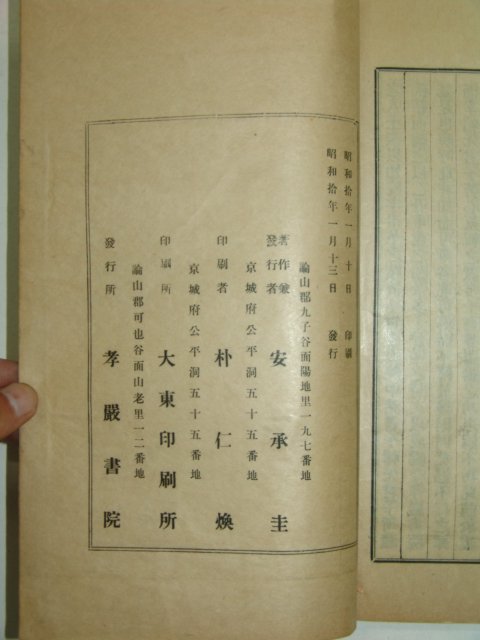 昭和拾年一月十日 印刷
昭和拾年一月十三日 發行
論山郡九子谷面陽地里一九七番地
著作兼
發行者 安承圭
京城府公平洞五十五番地
印刷者 朴仁煥
京城府公平洞五十五番地
印刷所 大東印刷所
論山郡可也谷面山老里一二番地
發行所 孝巖書院